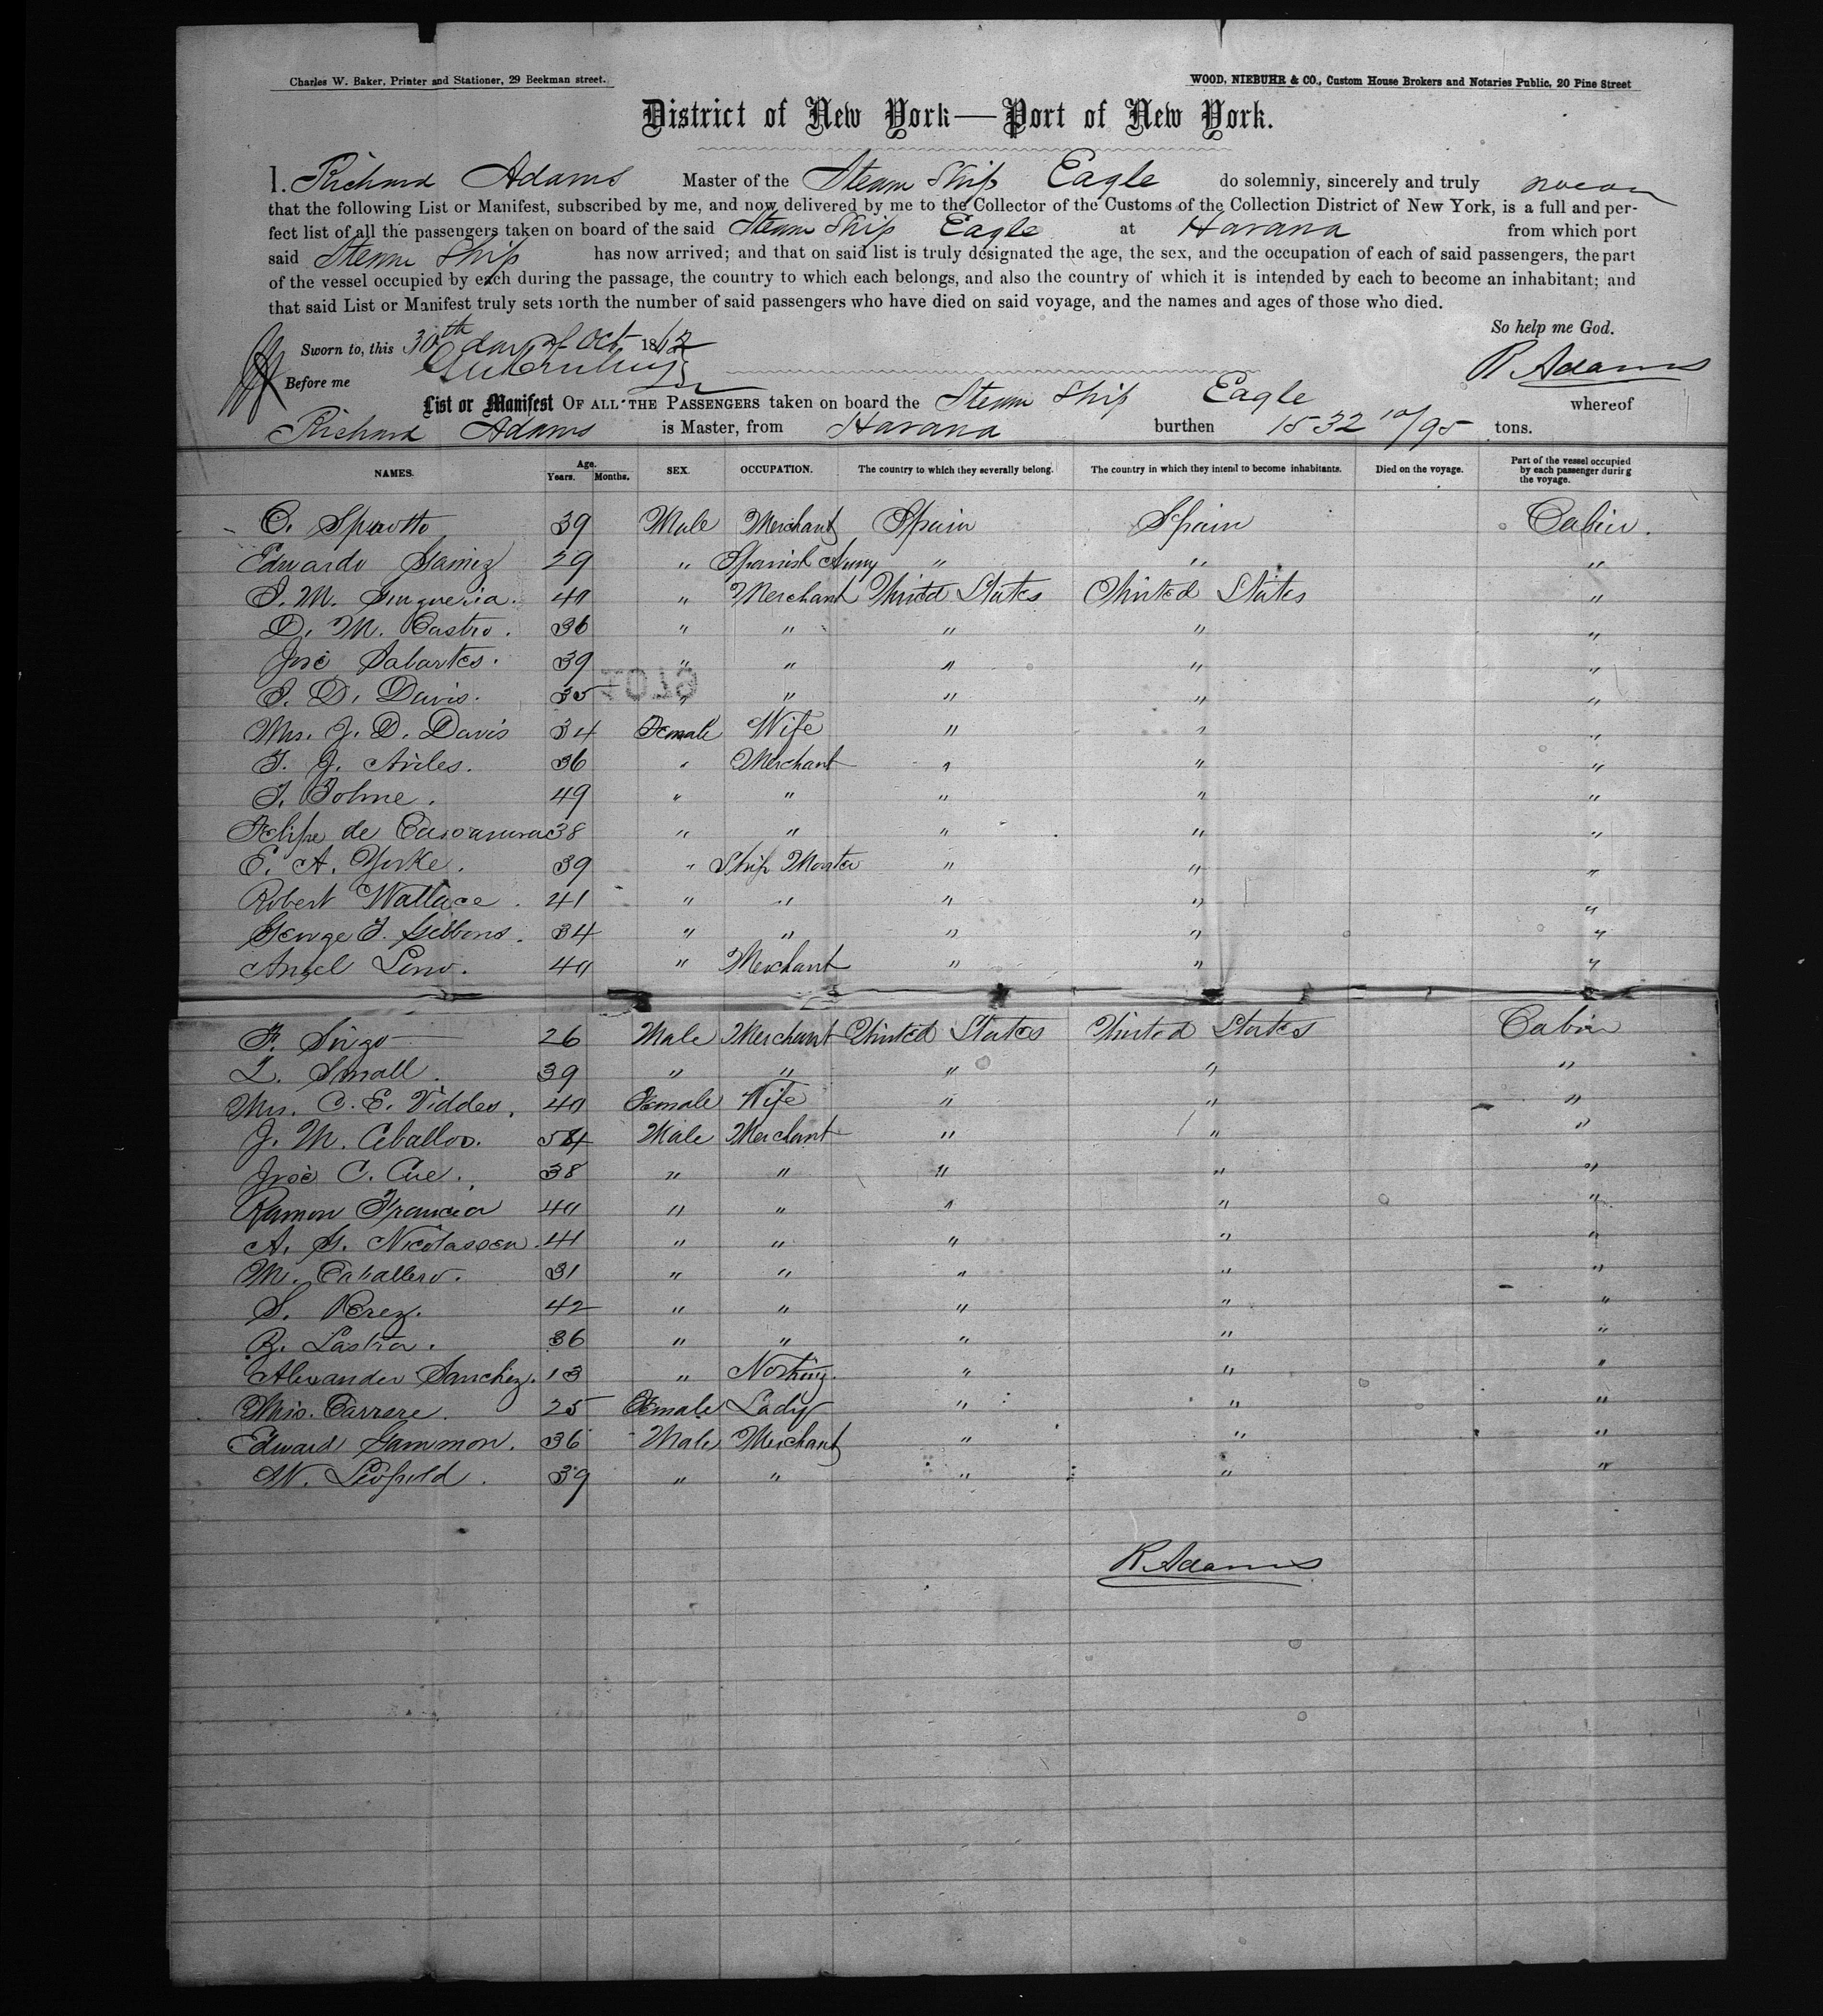 Charles W. Baker, Printer and Stationer, 29 Beekman street.
WOOD, NIEBUHR & CO., Custom House Brokers and Notaries Public, 20 Pine Street
District of New York—Port of New York.
I. Richard Adams Master of the Steam Ship Eagle do solemnly, sincerely and truly swear
that the following List or Manifest, subscribed by me, and now delivered by me to the Collector of the Customs of the Collection District of New York, is a full and per-
fect list of all the passengers taken on board of the said Steam Ship Eagle at Havana from which port
said Steam Ship has now arrived; and that on said list is truly designated the age, the sex, and the occupation of each of said passengers, the part
of the vessel occupied by each during the passage, the country to which each belongs, and also the country of which it is intended by each to become an inhabitant; and
that said List or Manifest truly sets forth the number of said passengers who have died on said voyage, and the names and ages of those who died.
So help me God.
Sworn to, this 30th day of Oct 18
R Adams
Before me
List or Manifest OF ALL THE PASSENGERS taken on board the Steam Ship Eagle whereof
Richard Adams is Master, from Havana burthen 1532 10/95 tons.
NAMES. Age. Years. Months. SEX. OCCUPATION. The country to which they severally belong. The country in which they intend to become inhabitants. Died on the voyage. Part of the vessel occupied by each passenger during the voyage.
C. 39 Male Merchant Spain Spain Cabin.
Eduardo 29 " Spanish Army " " "
M. 40 " Merchant United States United States "
D. M. Castro. 36 " " " " "
José Sabartes. 39 " " " " "
D. Davis. 35 " " " " "
Mrs. J. D. Davis 34 Female Wife " " "
J. Aviles. 36 " Merchant " " "
49 " " " " "
Felipe de 38 " " " " "
E. A. Yorke. 39 " Ship Master " " "
Robert Wallace. 41 " " " " "
George Gibbons. 34 " " " " "
Angel 40 " Merchant " " "
F. 26 Male Merchant United States United States Cabin
Small. 39 " " " " "
Mrs. C. E. 40 Female Wife " " "
J. M. Ceballos. 54 Male Merchant " " "
José C. Cue. 38 " " " " "
Ramon Francia 40 " " " " "
A. Nicolassen. 41 " " " " "
M. Caballero. 31 " " " " "
S. Perez. 42 " " " " "
Lastra. 36 " " " " "
Alexander Sanchez. 13 " Nothing. " " "
Carrere. 25 Female Lady " " "
Edward Gammon. 36 Male Merchant " " "
W. Leopold. 39 " " " " "
R Adams